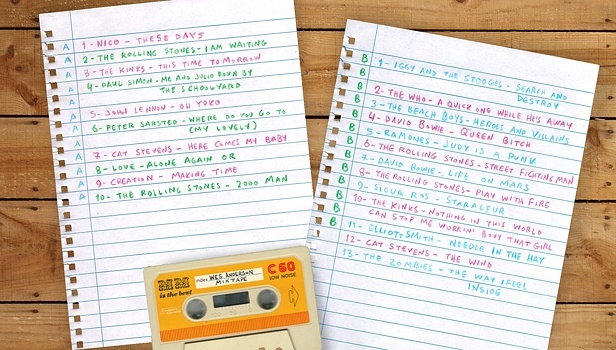 A 1- NICO - THESE DAYS
A 2- THE ROLLING STONES - I AM WAITING
A 3- THE KINKS - THIS TIME TOMORROW
A 4- PAUL SIMON - ME AND JULIO DOWN BY
THE SCHOOLYARD
A 5- JOHN LENNON - OH YOKO
A 6- PETER SARSTED - WHERE DO YOU GO TO
(MY LOVELY)
A 7- CAT STEVENS - HERE COMES MY BABY
A 8- LOVE - ALONE AGAIN OR
A 9- CREATION - MAKING TIME
A 10- THE ROLLING STONES - 2000 MAN
B 1- IGGY AND THE STOOGES - SEARCH AND
DESTROY
B 2- THE WHO - A QUICK ONE WHILE HE'S AWAY
B 3- THE BEACH BOYS - HEROES AND VILLAINS
B 4- DAVID BOWIE - QUEEN BITCH
B 5- RAMONES - JUDY IS A PUNK
B 6- THE ROLLING STONES - STREET FIGHTING MAN
B 7- DAVID BOWIE - LIFE ON MARS
B 8- THE ROLLING STONES - PLAY WITH FIRE
B 9- SIGUR ROS - STARALFUR
B 10- THE KINKS - NOTHING IN THIS WORLD
CAN STOP ME WORRIN' BOUT THAT GIRL
B 11- ELLIOTT SMITH - NEEDLE IN THE HAY
B 12- CAT STEVENS - THE WIND
B 13- THE ZOMBIES - THE WAY I FEEL
INSIDE
is the best
WES ANDERSON
MIXTAPE
C60
LOW NOISE